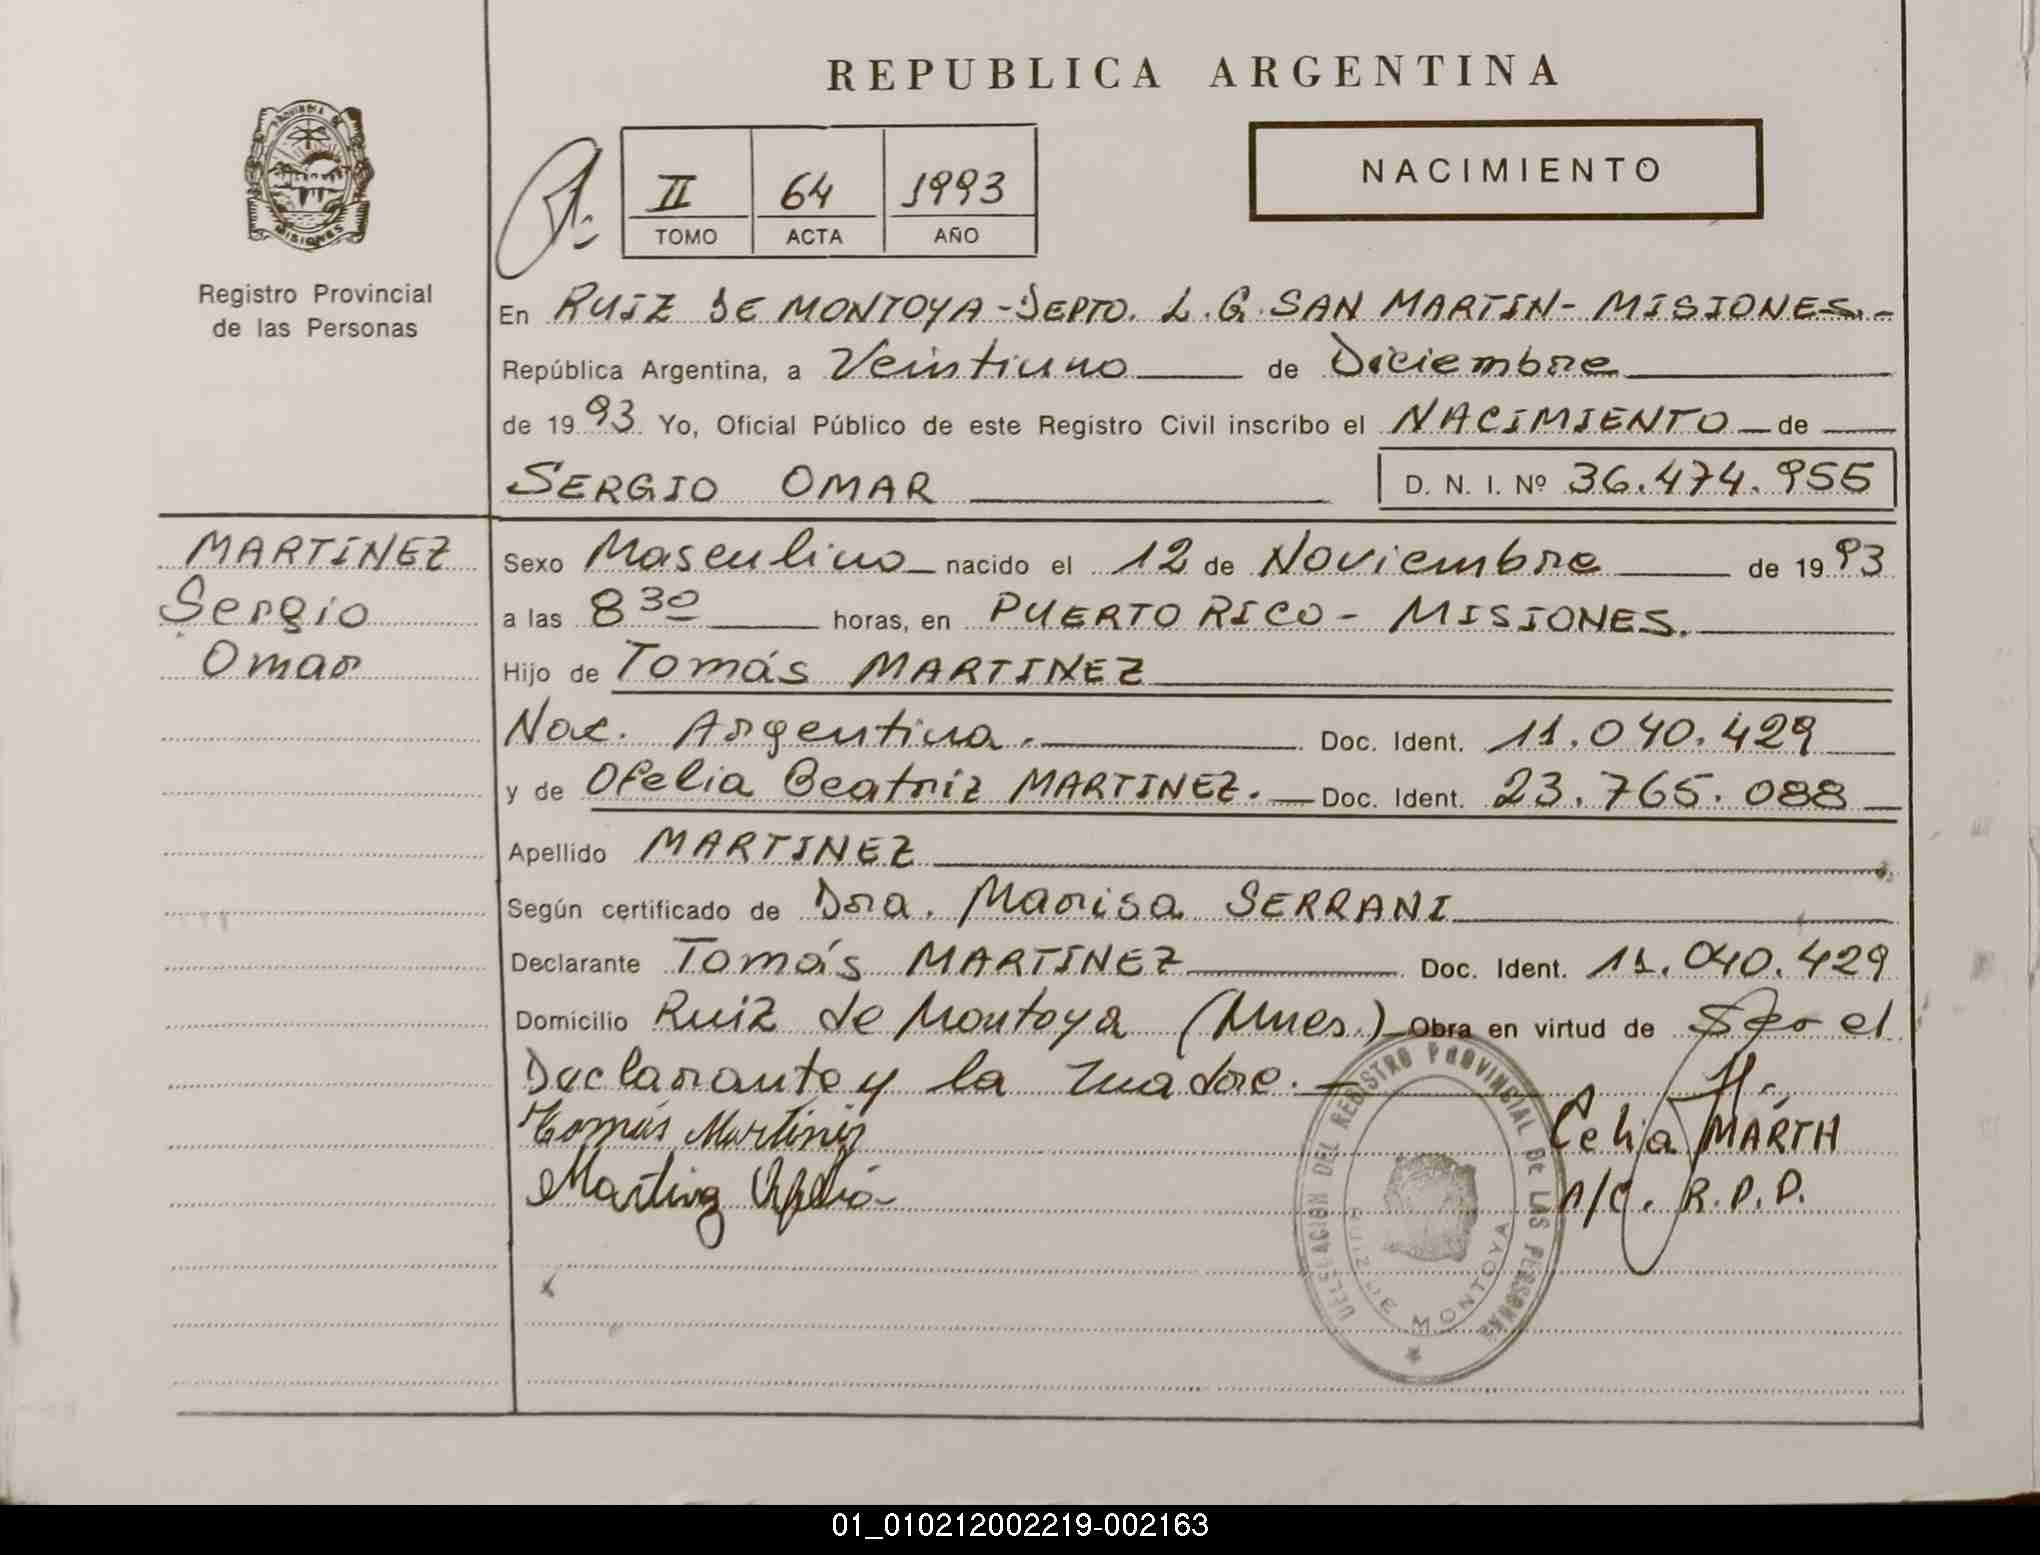 REPUBLICA ARGENTINA
PROVINCIA DE MISIONES
Registro Provincial
de las Personas
II 64 1993
TOMO ACTA AÑO
NACIMIENTO
En RUIZ DE MONTOYA - DEPTO. L. G. SAN MARTIN - MISIONES.-
República Argentina, a Veintiuno de Diciembre
de 1993 Yo, Oficial Público de este Registro Civil inscribo el NACIMIENTO de
SERGIO OMAR D. N. I. Nº 36.474.955
MARTINEZ
Sergio
Omar
Sexo Masculino nacido el 12 de Noviembre de 1993
a las 8 30 horas, en PUERTO RICO - MISIONES.
Hijo de Tomás MARTINEZ
Nac. Argentina.- Doc. Ident. 11.040.429
y de Ofelia Beatriz MARTINEZ.- Doc. Ident. 23.765.088
Apellido MARTINEZ
Según certificado de Dra. Marisa SERRANI
Declarante Tomás MARTINEZ Doc. Ident. 11.040.429
Domicilio Ruiz de Montoya (Mnes.) Obra en virtud de Ser el
Declarante y la madre.-
Tomás Martinez
Martinez Ofelia
Celia MARTH
A/C. R.P.P.
DELEGACION DEL REGISTRO PROVINCIAL DE LAS PERSONAS
RUIZ DE MONTOYA
01_010212002219-002163